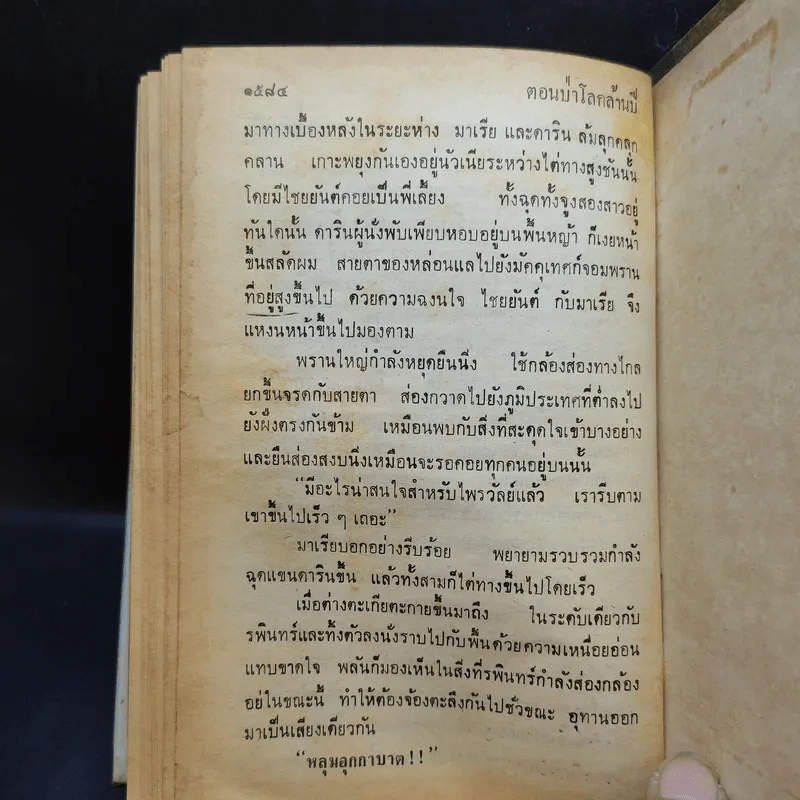 ๑๕๘๔
ตอนป่าโลกล้านปี
มาทางเบื้องหลังในระยะห่าง มาเรีย และดาริน ล้มลุกคลุก
คลาน เกาะพยุงกันเองอยู่นัวเนียระหว่างไต่ทางสูงชันนั้น
โดยมีไชยยันต์คอยเป็นพี่เลี้ยง ทั้งฉุดทั้งจูงสองสาวอยู่
ทันใดนั้น ดารินผู้นั่งพับเพียบหอบอยู่บนพื้นหญ้า ก็เงยหน้า
ขึ้นสลัดผม สายตาของหล่อนแลไปยังมัคคุเทศก์จอมพราน
ที่อยู่สูงขึ้นไป ด้วยความฉงนใจ ไชยยันต์ กับมาเรีย จึง
แหงนหน้าขึ้นไปมองตาม
พรานใหญ่กำลังหยุดยืนนิ่ง ใช้กล้องส่องทางไกล
ยกขึ้นจรดกับสายตา ส่องกวาดไปยังภูมิประเทศที่ต่ำลงไป
ยังฝั่งตรงกันข้าม เหมือนพบกับสิ่งที่สะดุดใจเข้าบางอย่าง
และยืนส่องสงบนิ่งเหมือนจะรอคอยทุกคนอยู่บนนั้น
“มีอะไรน่าสนใจสำหรับไพรวัลย์แล้ว เรารีบตาม
เขาขึ้นไปเร็ว ๆ เถอะ”
มาเรียบอกอย่างรีบร้อย พยายามรวบรวมกำลัง
ฉุดแขนดารินขึ้น แล้วทั้งสามก็ไต่ทางขึ้นไปโดยเร็ว
เมื่อต่างตะเกียตะกายขึ้นมาถึง ในระดับเดียวกับ
รพินทร์และทิ้งตัวลงนั่งราบไปกับพื้นด้วยความเหนื่อยอ่อน
แทบขาดใจ พลันก็มองเห็นในสิ่งที่รพินทร์กำลังส่องกล้อง
อยู่ในขณะนี้ ทำให้ต้องจ้องตะลึงกันไปชั่วขณะ อุทานออก
มาเป็นเสียงเดียวกัน
“หลุมอุกกาบาต!!”